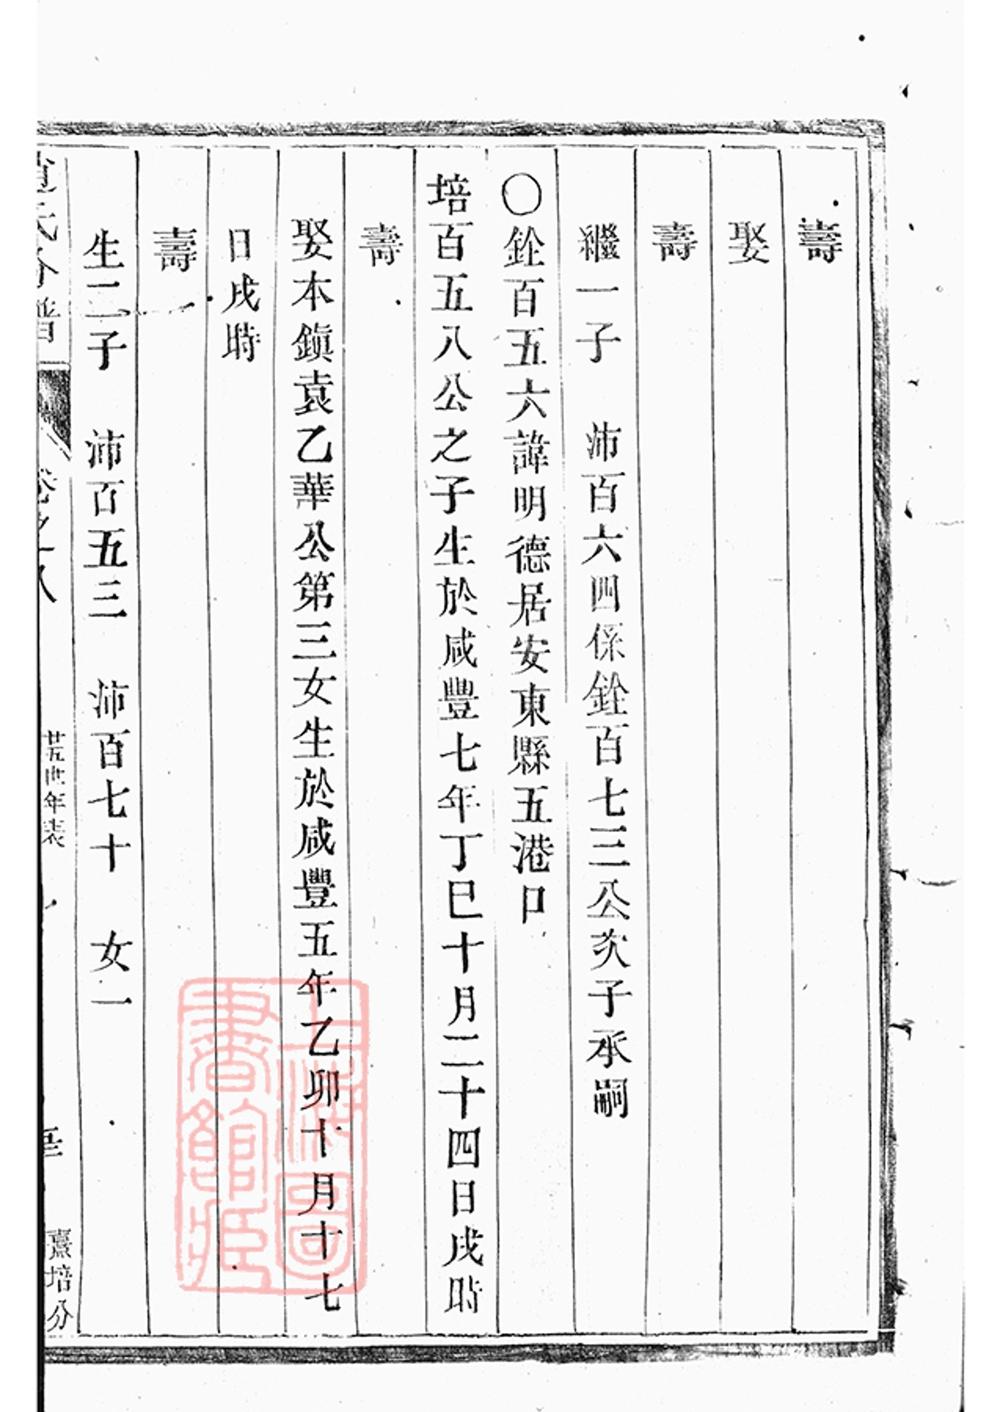 壽
娶
壽
繼一子　沛百六四係銓百七三公次子承嗣
〇銓百五六諱明德居安東縣五港口
培百五八公之子生於咸豐七年丁巳十月二十四日戌時
壽
娶本鎮袁乙華公第三女生於咸豐五年乙卯十月十七
日戌時
壽
生二子　沛百五三　沛百七十　女一
氏分譜
卷之八
廿五世年表
熹培分
上海圖
書館藏